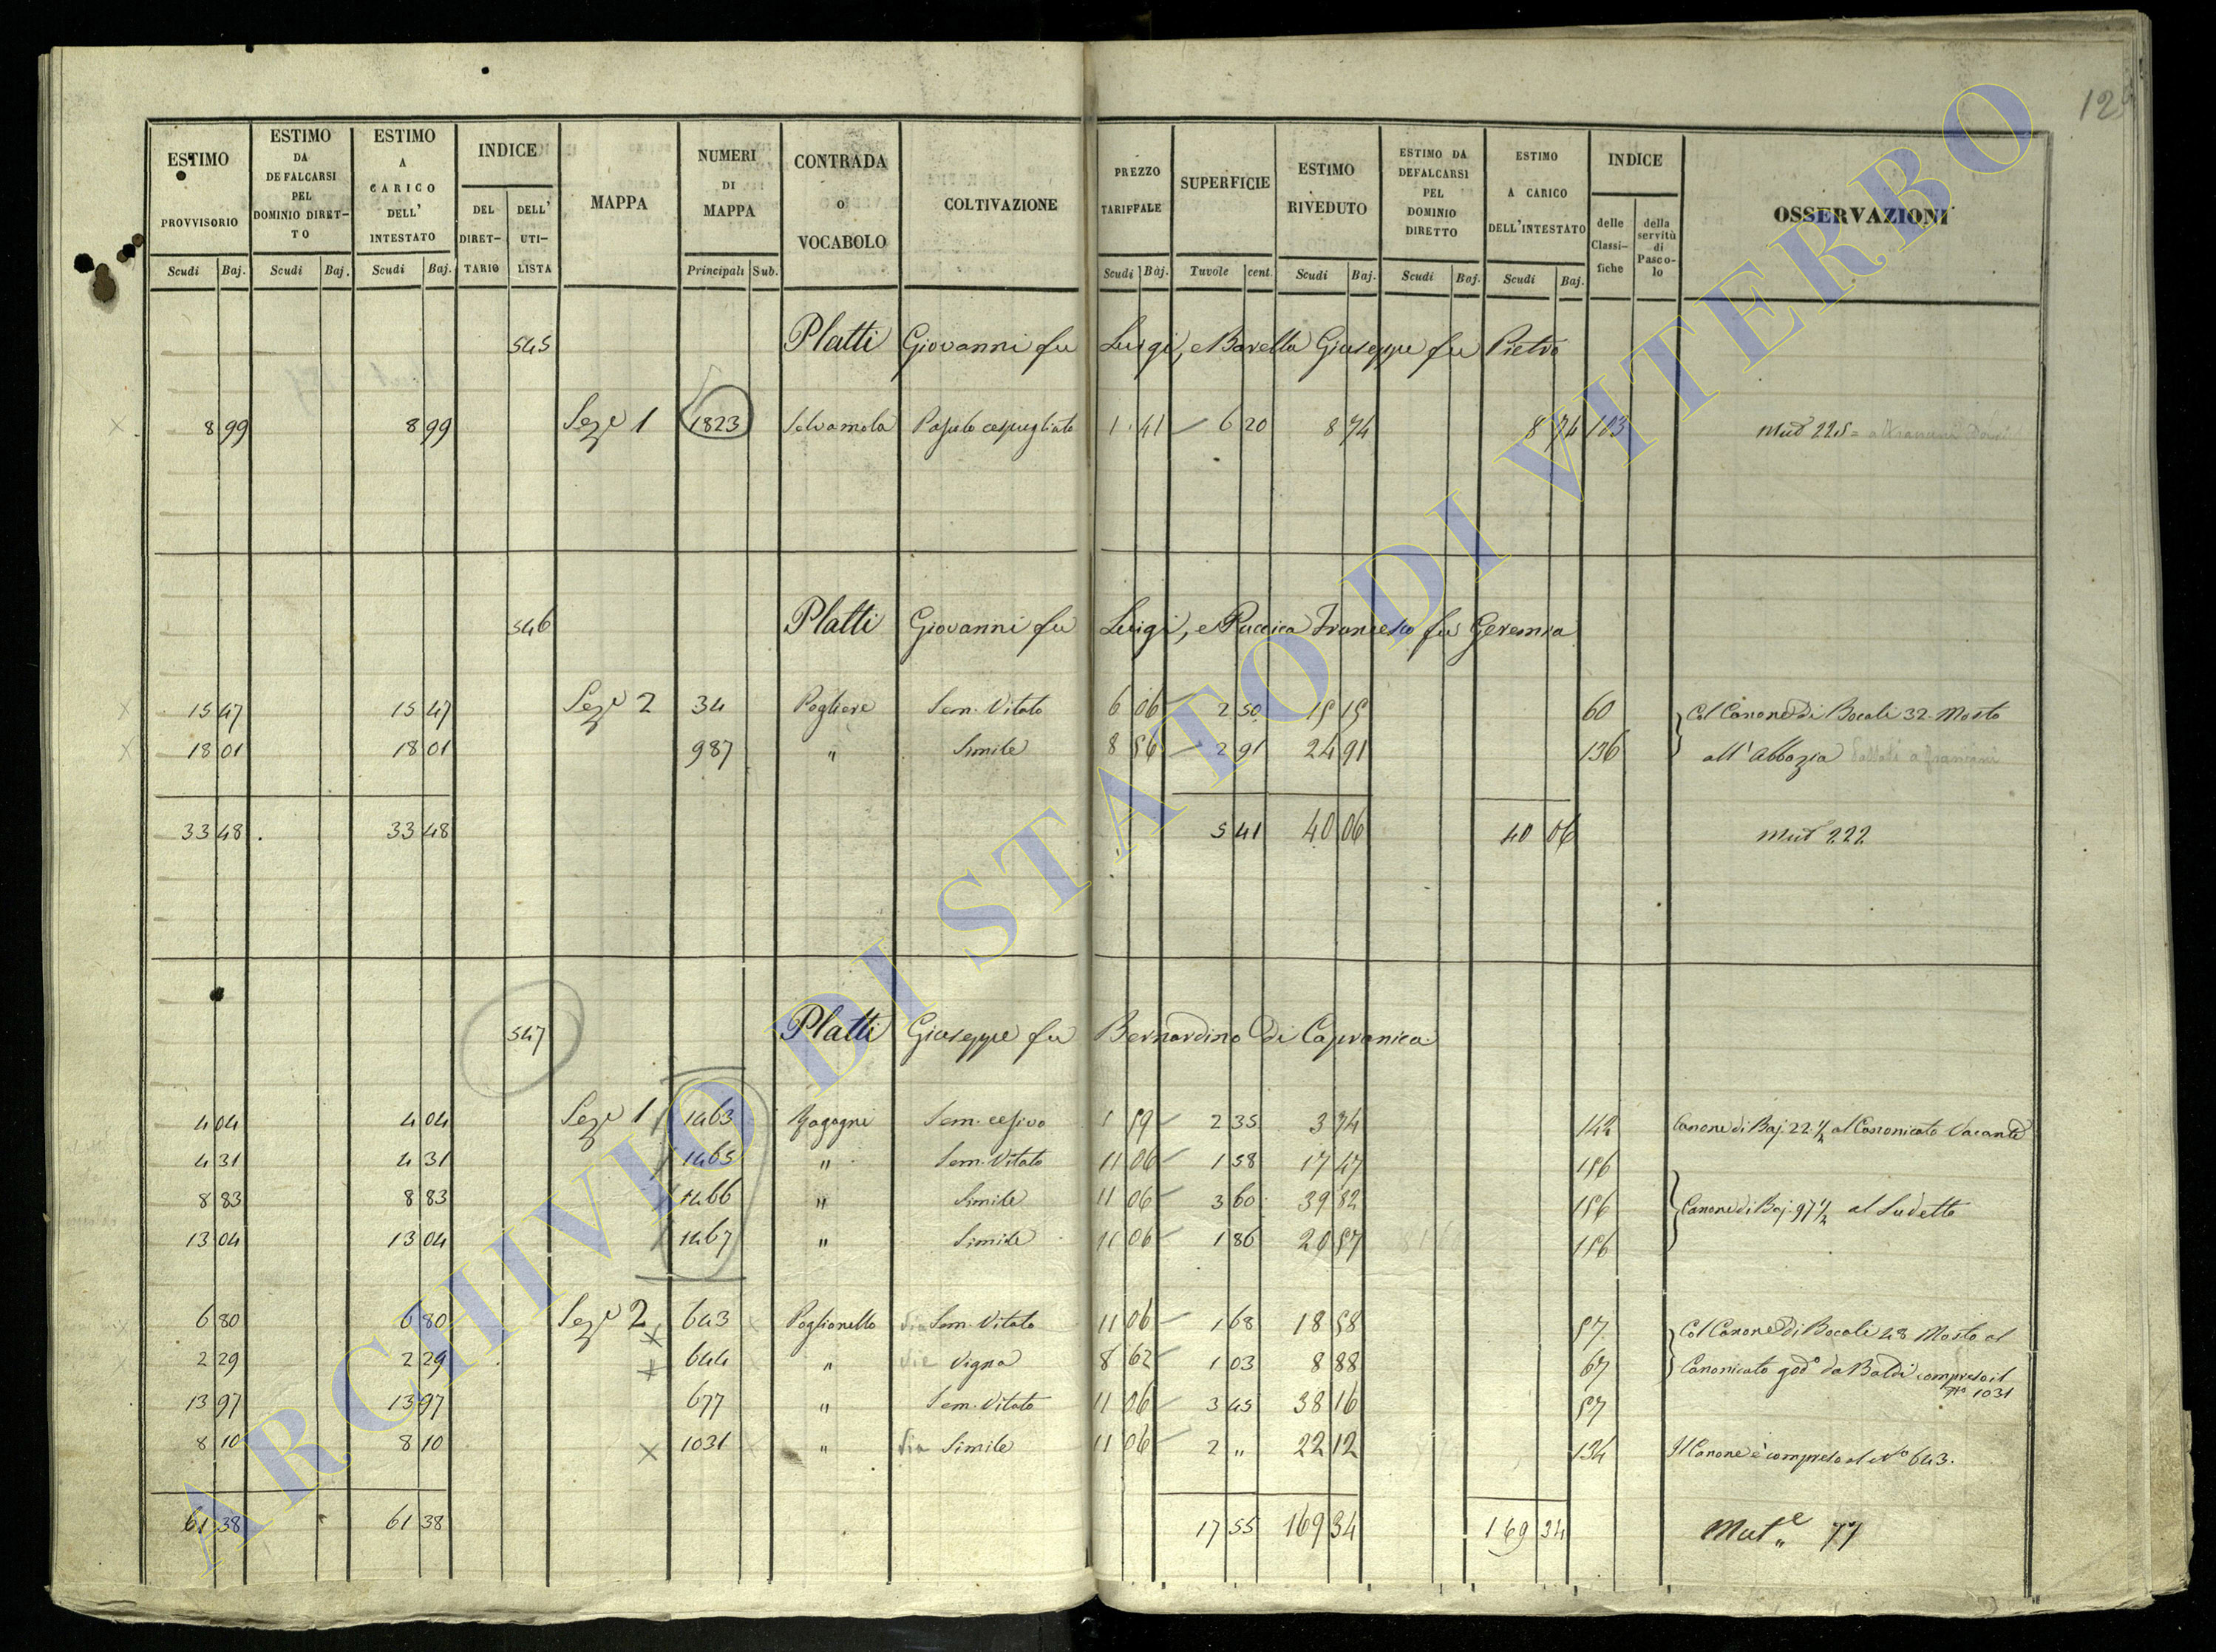 12
ESTIMO PROVVISORIO | ESTIMO DA DEFALCARSI PEL DOMINIO DIRETTO | ESTIMO A CARICO DELL' INTESTATO | INDICE DEL DIRETTARIO | DELL' UTILISTA | MAPPA | NUMERI DI MAPPA | CONTRADA O VOCABOLO | COLTIVAZIONE | PREZZO TARIFFALE | SUPERFICIE | ESTIMO RIVEDUTO | ESTIMO DA DEFALCARSI PEL DOMINIO DIRETTO | ESTIMO A CARICO DELL'INTESTATO | INDICE delle Classifiche | della servitù di Pascolo | OSSERVAZIONI
Scudi | Baj. | Scudi | Baj. | Scudi | Baj. | Principali | Sub. | Scudi | Baj. | Tavole | cent. | Scudi | Baj. | Scudi | Baj. | Scudi | Baj.
545 Platti Giovanni fu Luigi, e Giuseppe fu Pietro
8 99 | 8 99 | Sez.e 1 | 1823 | Selvamola | Pascolo cespugliato | 1 41 | 6 20 | 8 74 | 8 74 | 103 | Mut 225
546 Platti Giovanni fu Luigi, e Puccica Francesco fu Geremia
15 47 | 15 47 | Sez.e 2 | 34 | Pogliere | Sem. Vitato | 6 06 | 2 50 | 15 15 | 60 | Col Canone di Bocali 32 Mosto
18 01 | 18 01 | 987 | " | Simile | 8 56 | 2 91 | 24 91 | 136 | all' Abbazia
33 48 | 33 48 | 5 41 | 40 06 | 40 06 | Mut 222
547 Platti Giuseppe fu Bernardino di Capranica
4 04 | 4 04 | Sez.e 1 | 1463 | Sem. | 1 59 | 2 35 | 3 74 | 142 | Canone di Baj. 22 ½ al Canonicato Vacante
4 31 | 4 31 | 1465 | " | Sem. Vitato | 11 06 | 1 58 | 17 47 | 156
8 83 | 8 83 | 1466 | " | Simile | 11 06 | 3 60 | 39 82 | 156 | Canone di Baj. 97 ½ al Sudetto
13 04 | 13 04 | 1467 | " | Simile | 11 06 | 1 86 | 20 57 | 156
6 80 | 6 80 | Sez.e 2 | 643 | Poglionello | Sem. Vitato | 11 06 | 1 68 | 18 58 | 57 | Col Canone di Bocali 48 Mosto al
2 29 | 2 29 | 644 | " | Vigna | 8 62 | 1 03 | 8 88 | 67 | Canonicato god.o da Baldi compreso il
1031
13 97 | 13 97 | 677 | " | Sem. Vitato | 11 06 | 3 45 | 38 16 | 57
8 10 | 8 10 | 1031 | " | Simile | 11 06 | 2 " | 22 12 | 134 | Il Canone è compreso al No 643.
61 38 | 61 38 | 17 55 | 169 34 | 169 34 | Mut.e 77
ARCHIVIO DI STATO DI VITERBO